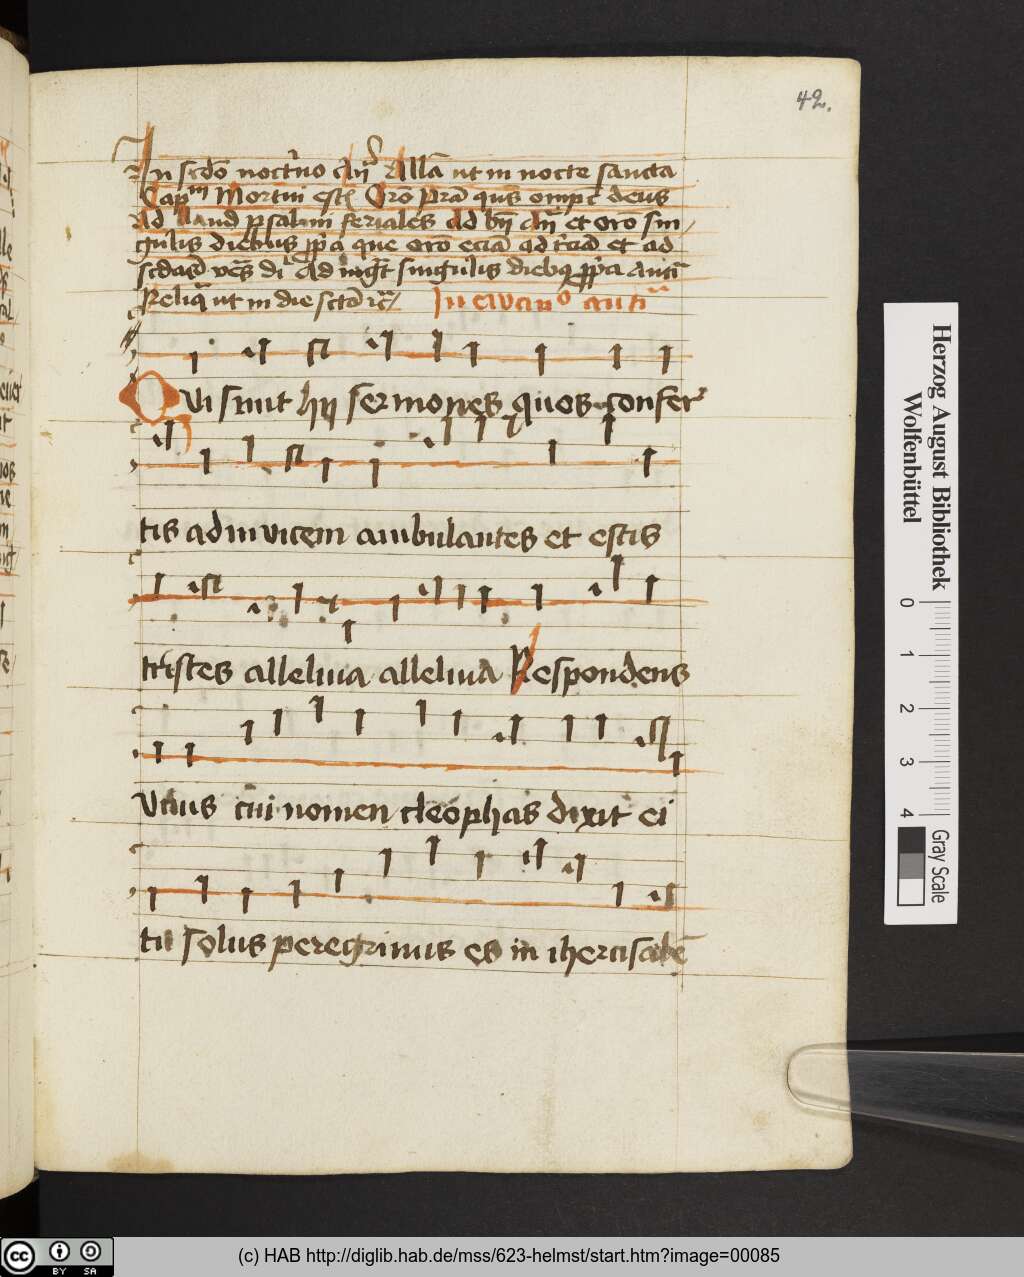 42.
In scdo nocturno an Alla ut in nocte sancta
Capm Mortui estis Oro Pra qus omps deus
Ad laud psalmi feriales ad bn an et oro sin
gulis diebus ppa que oro ecia ad et ad
scdas ves di Ad singulis diebq ppa anti
Reliq ut in die scto In ewango anti
Qui sunt hij sermones quos confer
tis adinvicem ambulantes et estis
tristes alleluia alleluia Respondens
vnus cui nomen cleophas dixit ei
tu solus peregrinus es in iherusalē
Herzog August Bibliothek
Wolfenbüttel
0 1 2 3 4
Gray Scale
cc BY SA
(c) HAB http://diglib.hab.de/mss/623-helmst/start.htm?image=00085